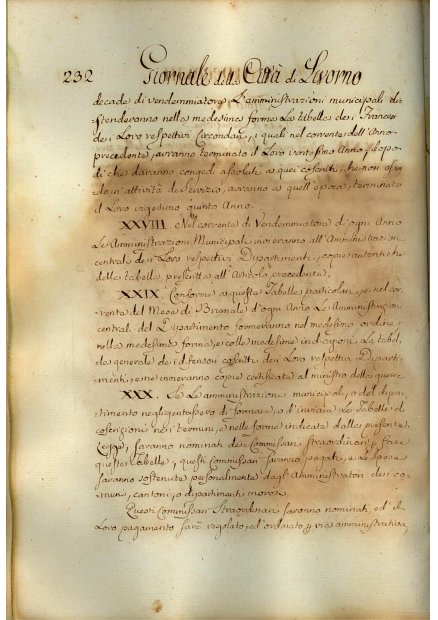 232 Giornale della Città di Livorno
decade di vendemmiatore L'amministrazioni municipali di-
stenderanno nella medesima forma La tabella dei Francesi
dei Loro respettivi Circondari, i quali nel corrente dell'Anno
precedente, avranno terminato il Loro ventesimo Anno, dopo
di che daranno congedi assoluti a quei coscritti, che non essen
do in attività di servizio, avranno a quell'epoca, terminato
il Loro vigesimo quinto Anno.
XXVIII. Nel corrente di Vendemmiatore di ogni Anno
Le Amministrazioni Municipali invieranno all'Amministrazion
centrale dei Loro respettivi Dipartimenti, copie autentiche
delle tabelle prescritte all'Articolo precedente.
XXIX. Conforme a queste Tabelle particolari, e nel cor-
rente del Mese di Brumale d'ogni Anno Le Amministrazion
centrali del Dipartimento formeranno nel medesimo ordine,
nella medesima forma, e colle medesime indicazioni La tabel-
la generale dei difensori coscritti dei Loro respettivi Diparti-
menti, e ne invieranno copia certificata al ministro della guerra
XXX. Se Le amministrazioni municipali, o del dipar-
timento negligentassero di formare, o d'inviare Le Tabelle di
coscrizione nei termini, e nelle forme indicate dalla presente
Legge, saranno nominati dei Commissari straordinari per fare
queste tabelle, questi Commissari saranno pagati, e Le spese
saranno sostenute personalmente dagl'Amministratori dei co-
muni, cantoni, o dipartimenti morosi.
Questi Commissari Straordinari saranno nominati, ed il
Loro pagamento sarà regolato, ed ordinato per via amministrativa,